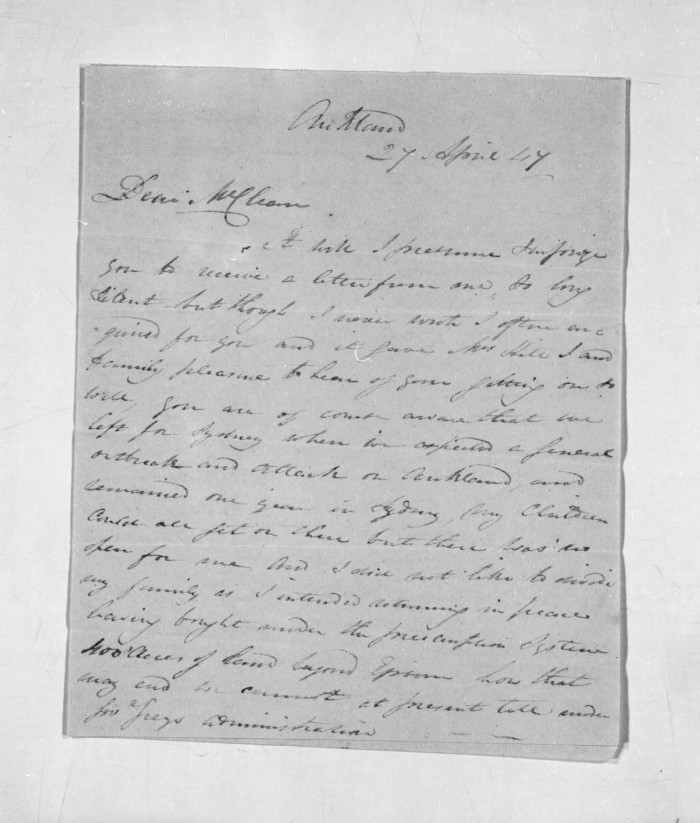 Auckland
27 April 47
Dear McClean
It will I presume surprise
you to receive a letter from me, so long
silent but though I never write I often en=
=quired for you and it gave Mrs Hill I and
family pleasure to hear of your getting on so
well, you are of course aware that we
left for Sydney when we expected a general
outbreak and attack on Auckland, and
remained one year in Sydney, My Children
could all get on there but there was no
open for me and I did not like to divide
my family as I intended returning in peace
having bought under the preemption system
400 Acres of Land beyond Epsom how that
may end we cannot at present tell under
Govr Greys administration